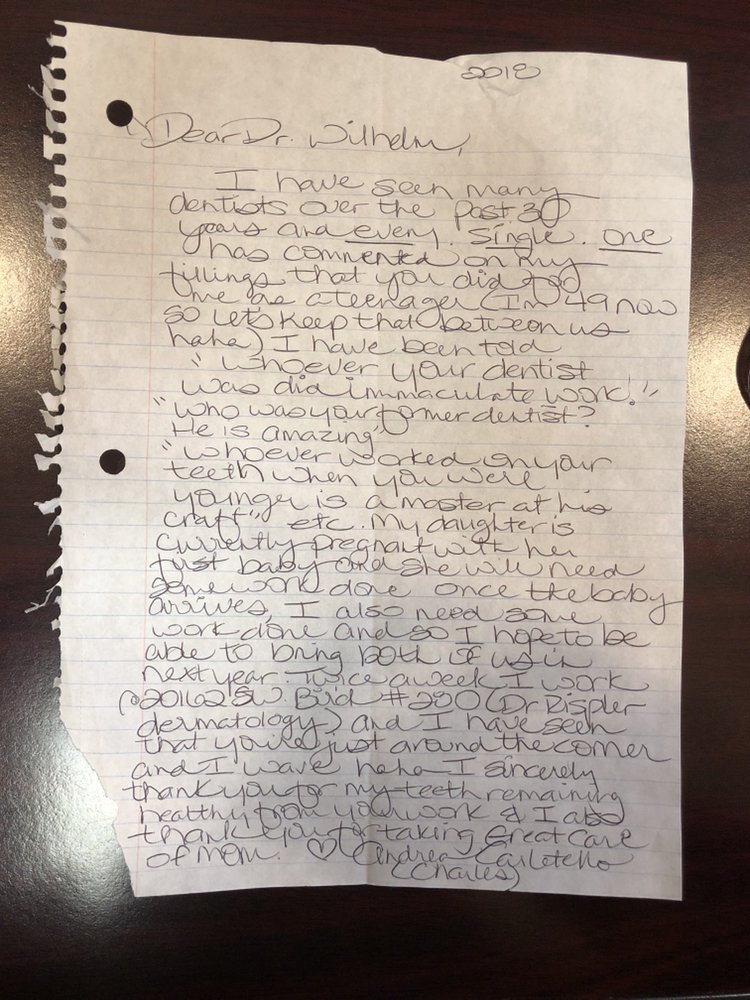 2018
Dear Dr. Wilhelm,
I have seen many
dentists over the past 30
years and every. single. one
has commented on my
fillings that you did to
me as a teenager (Im 49 now
so let's keep that between us
haha) I have been told
"Whoever your dentist
was did immaculate work!"
"Who was your former dentist?
He is amazing"
"Whoever worked on your
teeth when you were
younger is a master at his
craft" etc. My daughter is
currently pregnant with her
first baby and she will need
some work done once the baby
arrives. I also need some
work done and so I hope to be
able to bring both of us in
next year. Twice a week I work
SW. Bird #280 (Dr Rispler
dermatology) and I have seen
that you're just around the corner
and I wave haha I sincerely
thank you for my teeth remaining
healthy from your work & I also
thank you for taking great care
of mom. ♡ Andrea
(Charles)